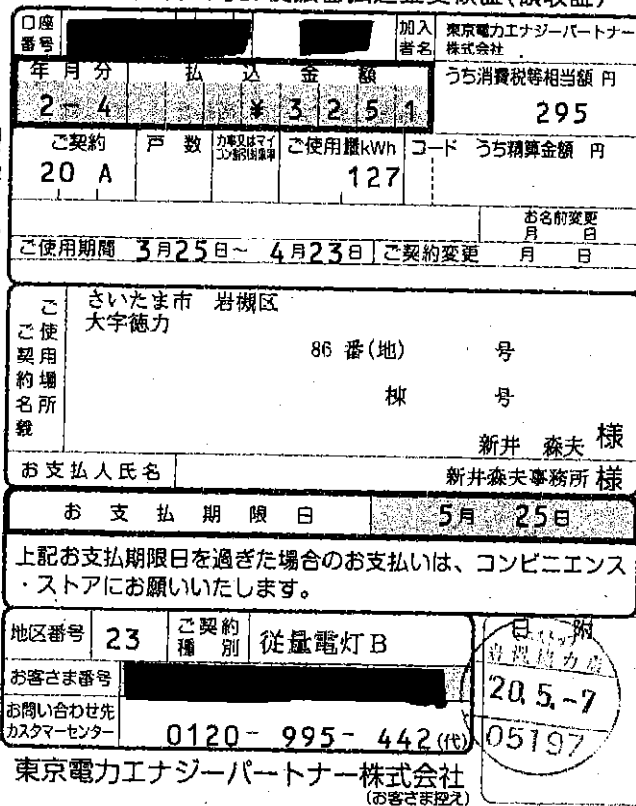 口座番号
加入者名 東京電力エナジーパートナー株式会社
年月分 払込金額 うち消費税等相当額 円
2-4 ¥3251 295
ご契約 戸数 ご使用量kWh コード うち精算金額 円
20 A 127
お名前変更
月 日
ご使用期間 3月25日~ 4月23日 ご契約変更 月 日
ご使用場所
ご契約名義
さいたま市 岩槻区
大字徳力
86 番(地) 号
棟 号
新井 森夫 様
お支払人氏名 新井森夫事務所 様
お支払期限日 5月 25日
上記お支払期限日を過ぎた場合のお支払いは、コンビニエンス
・ストアにお願いいたします。
地区番号 23 ご契約種別 従量電灯B
日附
お客さま番号
20.5.-7
お問い合わせ先
カスタマーセンター 0120- 995- 442(代)
05197
東京電力エナジーパートナー株式会社
(お客さま控え)